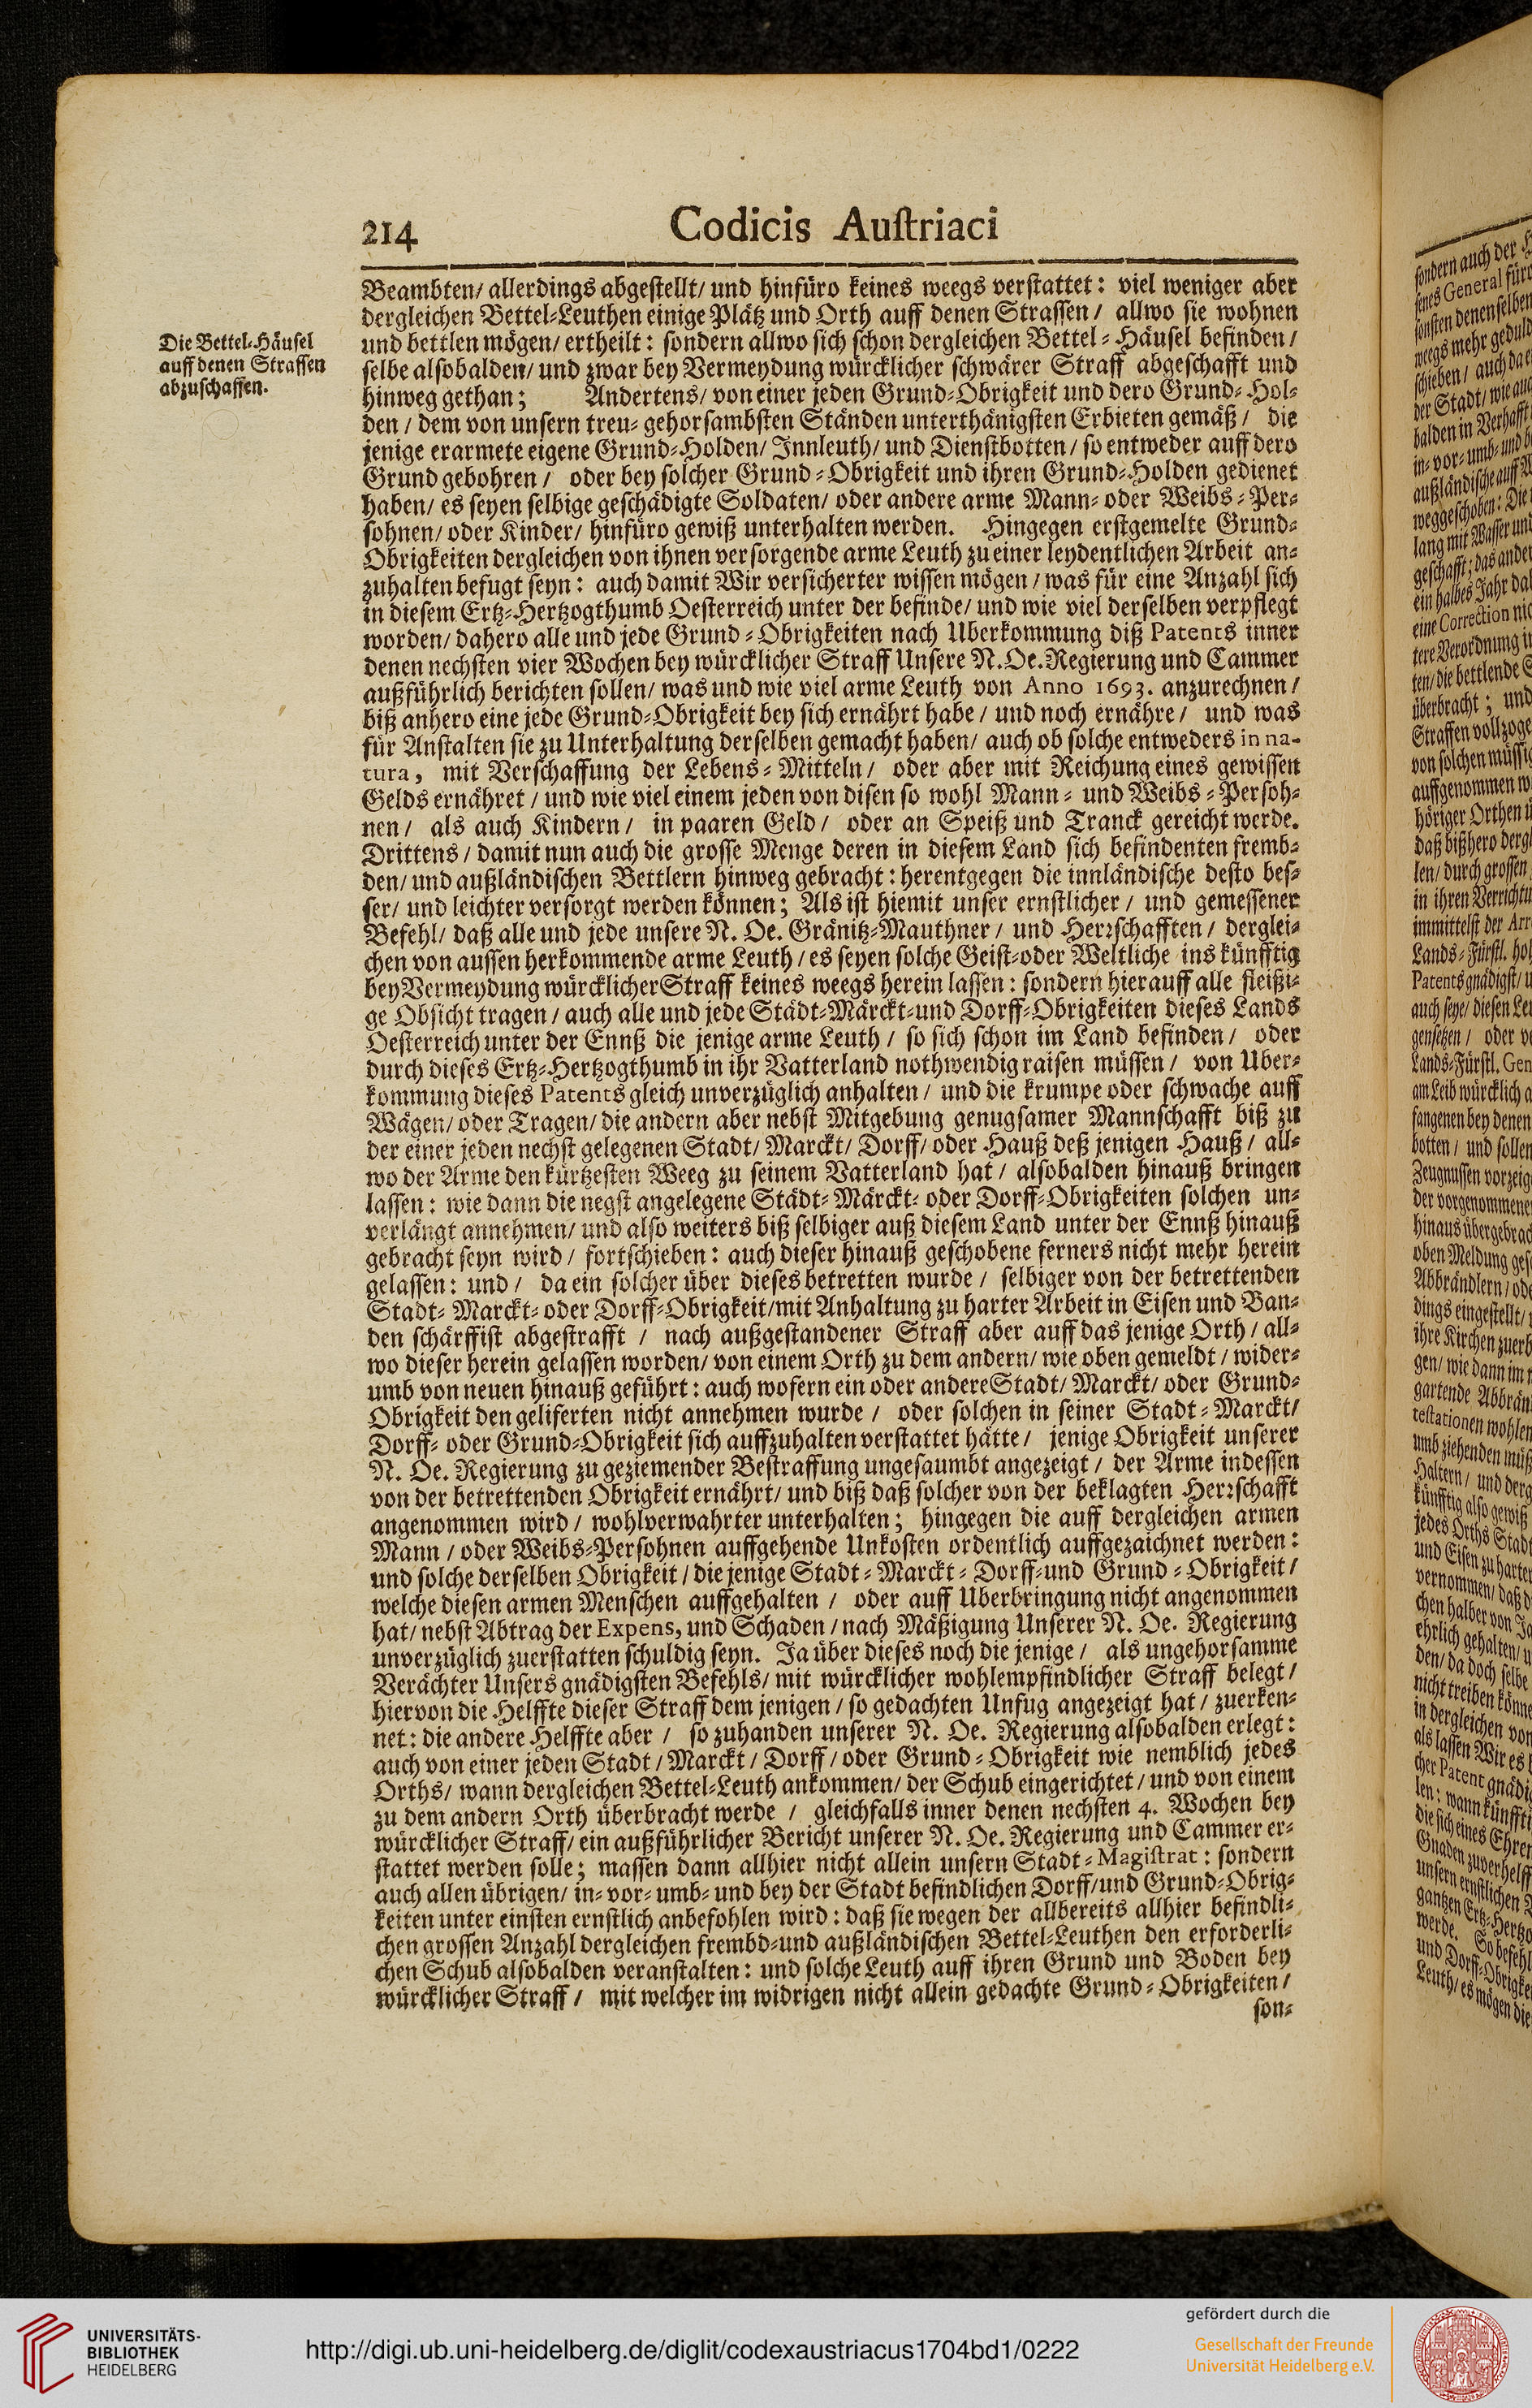 214 Codicis Auſtriaci
Die Bettel-Häuſel
auff denen Straſſen
abzuſchaffen.
Beambten/ allerdings abgeſtellt/ und hinfüro keines weegs verſtattet: viel weniger aber
dergleichen Bettel-Leuthen einige Plätz und Orth auff denen Straſſen / allwo ſie wohnen
und bettlen mögen/ ertheilt: ſondern allwo ſich ſchon dergleichen Bettel-Häuſel befinden /
ſelbe alſobalden/ und zwar bey Vermeydung würcklicher ſchwärer Straff abgeſchafft und
hinweg gethan; Andertens/ von einer jeden Grund-Obrigkeit und dero Grund-Hol-
den / dem von unſern treu-gehorſambſten Ständen unterthänigſten Erbieten gemäß / die
jenige erarmete eigene Grund-Holden/ Innleuth/ und Dienſtbotten / ſo entweder auff dero
Grund gebohren / oder bey ſolcher Grund-Obrigkeit und ihren Grund-Holden gedienet
haben/ es ſeyen ſelbige geſchädigte Soldaten/ oder andere arme Mann- oder Weibs-Per-
ſohnen/ oder Kinder/ hinfüro gewiß unterhalten werden. Hingegen erſtgemelte Grund-
Obrigkeiten dergleichen von ihnen verſorgende arme Leuth zu einer leydentlichen Arbeit an-
zuhalten befugt ſeyn: auch damit Wir verſicherter wiſſen mögen / was für eine Anzahl ſich
in dieſem Ertz-Hertzogthumb Oeſterreich unter der befinde/ und wie viel derſelben verpflegt
worden/ dahero alle und jede Grund-Obrigkeiten nach Uberkommung diß Patents inner
denen nechſten vier Wochen bey würcklicher Straff Unſere N. Oe. Regierung und Cammer
außführlich berichten ſollen/ was und wie viel arme Leuth von Anno 1693. anzurechnen /
biß anhero eine jede Grund-Obrigkeit bey ſich ernährt habe / und noch ernähre / und was
für Anſtalten ſie zu Unterhaltung derſelben gemacht haben/ auch ob ſolche entweders in na-
tura, mit Verſchaffung der Lebens-Mitteln / oder aber mit Reichung eines gewiſſen
Gelds ernähret / und wie viel einem jeden von diſen ſo wohl Mann- und Weibs-Perſoh-
nen / als auch Kindern / in paaren Geld / oder an Speiß und Tranck gereicht werde.
Drittens / damit nun auch die groſſe Menge deren in dieſem Land ſich befindenten fremb-
den/ und außländiſchen Bettlern hinweg gebracht: herentgegen die innländiſche deſto beſ-
ſer/ und leichter verſorgt werden können; Als iſt hiemit unſer ernſtlicher / und gemeſſener
Befehl/ daß alle und jede unſere N. Oe. Gränitz-Mauthner / und Herꝛſchafften / derglei-
chen von auſſen herkommende arme Leuth / es ſeyen ſolche Geiſt-oder Weltliche ins künfftig
bey Vermeydung würcklicher Straff keines weegs herein laſſen: ſondern hierauff alle fleißi-
ge Obſicht tragen / auch alle und jede Städt-Märckt-und Dorff-Obrigkeiten dieſes Lands
Oeſterreich unter der Ennß die jenige arme Leuth / ſo ſich ſchon im Land befinden / oder
durch dieſes Ertz-Hertzogthumb in ihr Vatterland nothwendig raiſen müſſen / von Uber-
kommung dieſes Patents gleich unverzüglich anhalten / und die krumpe oder ſchwache auff
Wägen/ oder Tragen/ die andern aber nebſt Mitgebung genugſamer Mannſchafft biß zu
der einer jeden nechſt gelegenen Stadt/ Marckt/ Dorff/ oder Hauß deß jenigen Hauß / all-
wo der Arme den kürtzeſten Weeg zu ſeinem Vatterland hat / alſobalden hinauß bringen
laſſen: wie dann die negſt angelegene Städt-Märckt-oder Dorff-Obrigkeiten ſolchen un-
verlängt annehmen/ und alſo weiters biß ſelbiger auß dieſem Land unter der Ennß hinauß
gebracht ſeyn wird / fortſchieben: auch dieſer hinauß geſchobene ferners nicht mehr herein
gelaſſen: und / da ein ſolcher über dieſes betretten wurde / ſelbiger von der betrettenden
Stadt-Marckt-oder Dorff-Obrigkeit/mit Anhaltung zu harter Arbeit in Eiſen und Ban-
den ſchärffiſt abgeſtrafft / nach außgeſtandener Straff aber auff das jenige Orth / all-
wo dieſer herein gelaſſen worden/ von einem Orth zu dem andern/ wie oben gemeldt / wider-
umb von neuen hinauß geführt: auch wofern ein oder andere Stadt/ Marckt/ oder Grund-
Obrigkeit den geliferten nicht annehmen wurde / oder ſolchen in ſeiner Stadt-Marckt/
Dorff- oder Grund-Obrigkeit ſich auffzuhalten verſtattet hätte / jenige Obrigkeit unſerer
N. Oe. Regierung zu geziemender Beſtraffung ungeſaumbt angezeigt / der Arme indeſſen
von der betrettenden Obrigkeit ernährt/ und biß daß ſolcher von der beklagten Herꝛſchafft
angenommen wird / wohlverwahrter unterhalten; hingegen die auff dergleichen armen
Mann / oder Weibs-Perſohnen auffgehende Unkoſten ordentlich auffgezaichnet werden:
und ſolche derſelben Obrigkeit / die jenige Stadt-Marckt-Dorff-und Grund-Obrigkeit /
welche dieſen armen Menſchen auffgehalten / oder auff Uberbringung nicht angenommen
hat/ nebſt Abtrag der Expens, und Schaden / nach Mäßigung Unſerer N. Oe. Regierung
unverzüglich zuerſtatten ſchuldig ſeyn. Ja über dieſes noch die jenige / als ungehorſamme
Verächter Unſers gnädigſten Befehls/ mit würcklicher wohlempfindlicher Straff belegt /
hiervon die Helffte dieſer Straff dem jenigen / ſo gedachten Unfug angezeigt hat / zuerken-
net: die andere Helffte aber / ſo zuhanden unſerer N. Oe. Regierung alſobalden erlegt:
auch von einer jeden Stadt / Marckt / Dorff / oder Grund-Obrigkeit wie nemblich jedes
Orths/ wann dergleichen Bettel-Leuth ankommen/ der Schub eingerichtet / und von einem
zu dem andern Orth überbracht werde / gleichfalls inner denen nechſten 4. Wochen bey
würcklicher Straff/ ein außführlicher Bericht unſerer N. Oe. Regierung und Cammer er-
ſtattet werden ſolle; maſſen dann allhier nicht allein unſern Stadt-Magiſtrat: ſondern
auch allen übrigen/ in-vor-umb-und bey der Stadt befindlichen Dorff/und Grund-Obrig-
keiten unter einſten ernſtlich anbefohlen wird: daß ſie wegen der allbereits allhier befindli-
chen groſſen Anzahl dergleichen frembd-und außländiſchen Bettel-Leuthen den erforderli-
chen Schub alſobalden veranſtalten: und ſolche Leuth auff ihren Grund und Boden bey
würcklicher Straff / mit welcher im widrigen nicht allein gedachte Grund-Obrigkeiten /
ſon-
UNIVERSITÄTS-
BIBLIOTHEK
HEIDELBERG
http://digi.ub.uni-heidelberg.de/diglit/codexaustriacus1704bd1/0222
gefördert durch die
Gesellschaft der Freunde
Universität Heidelberg e.V.